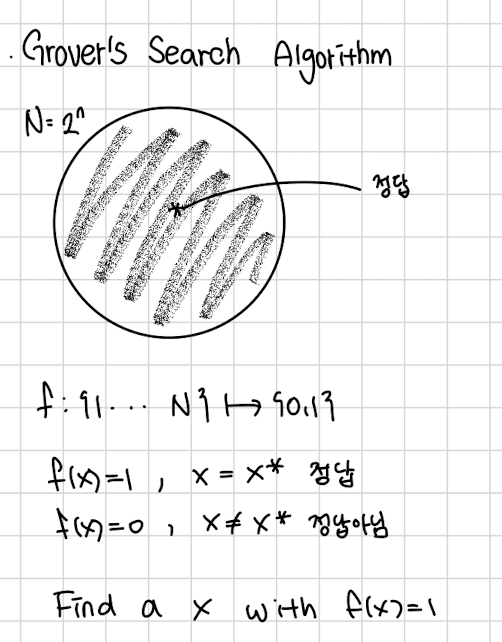 . Grover's Search Algorithm
N=2ⁿ
정답
f : {1 ··· N} ↦ {0,1}
f(x)=1 , x = x* 정답
f(x)=0 , x ≠ x* 정답아님
Find a x with f(x)=1